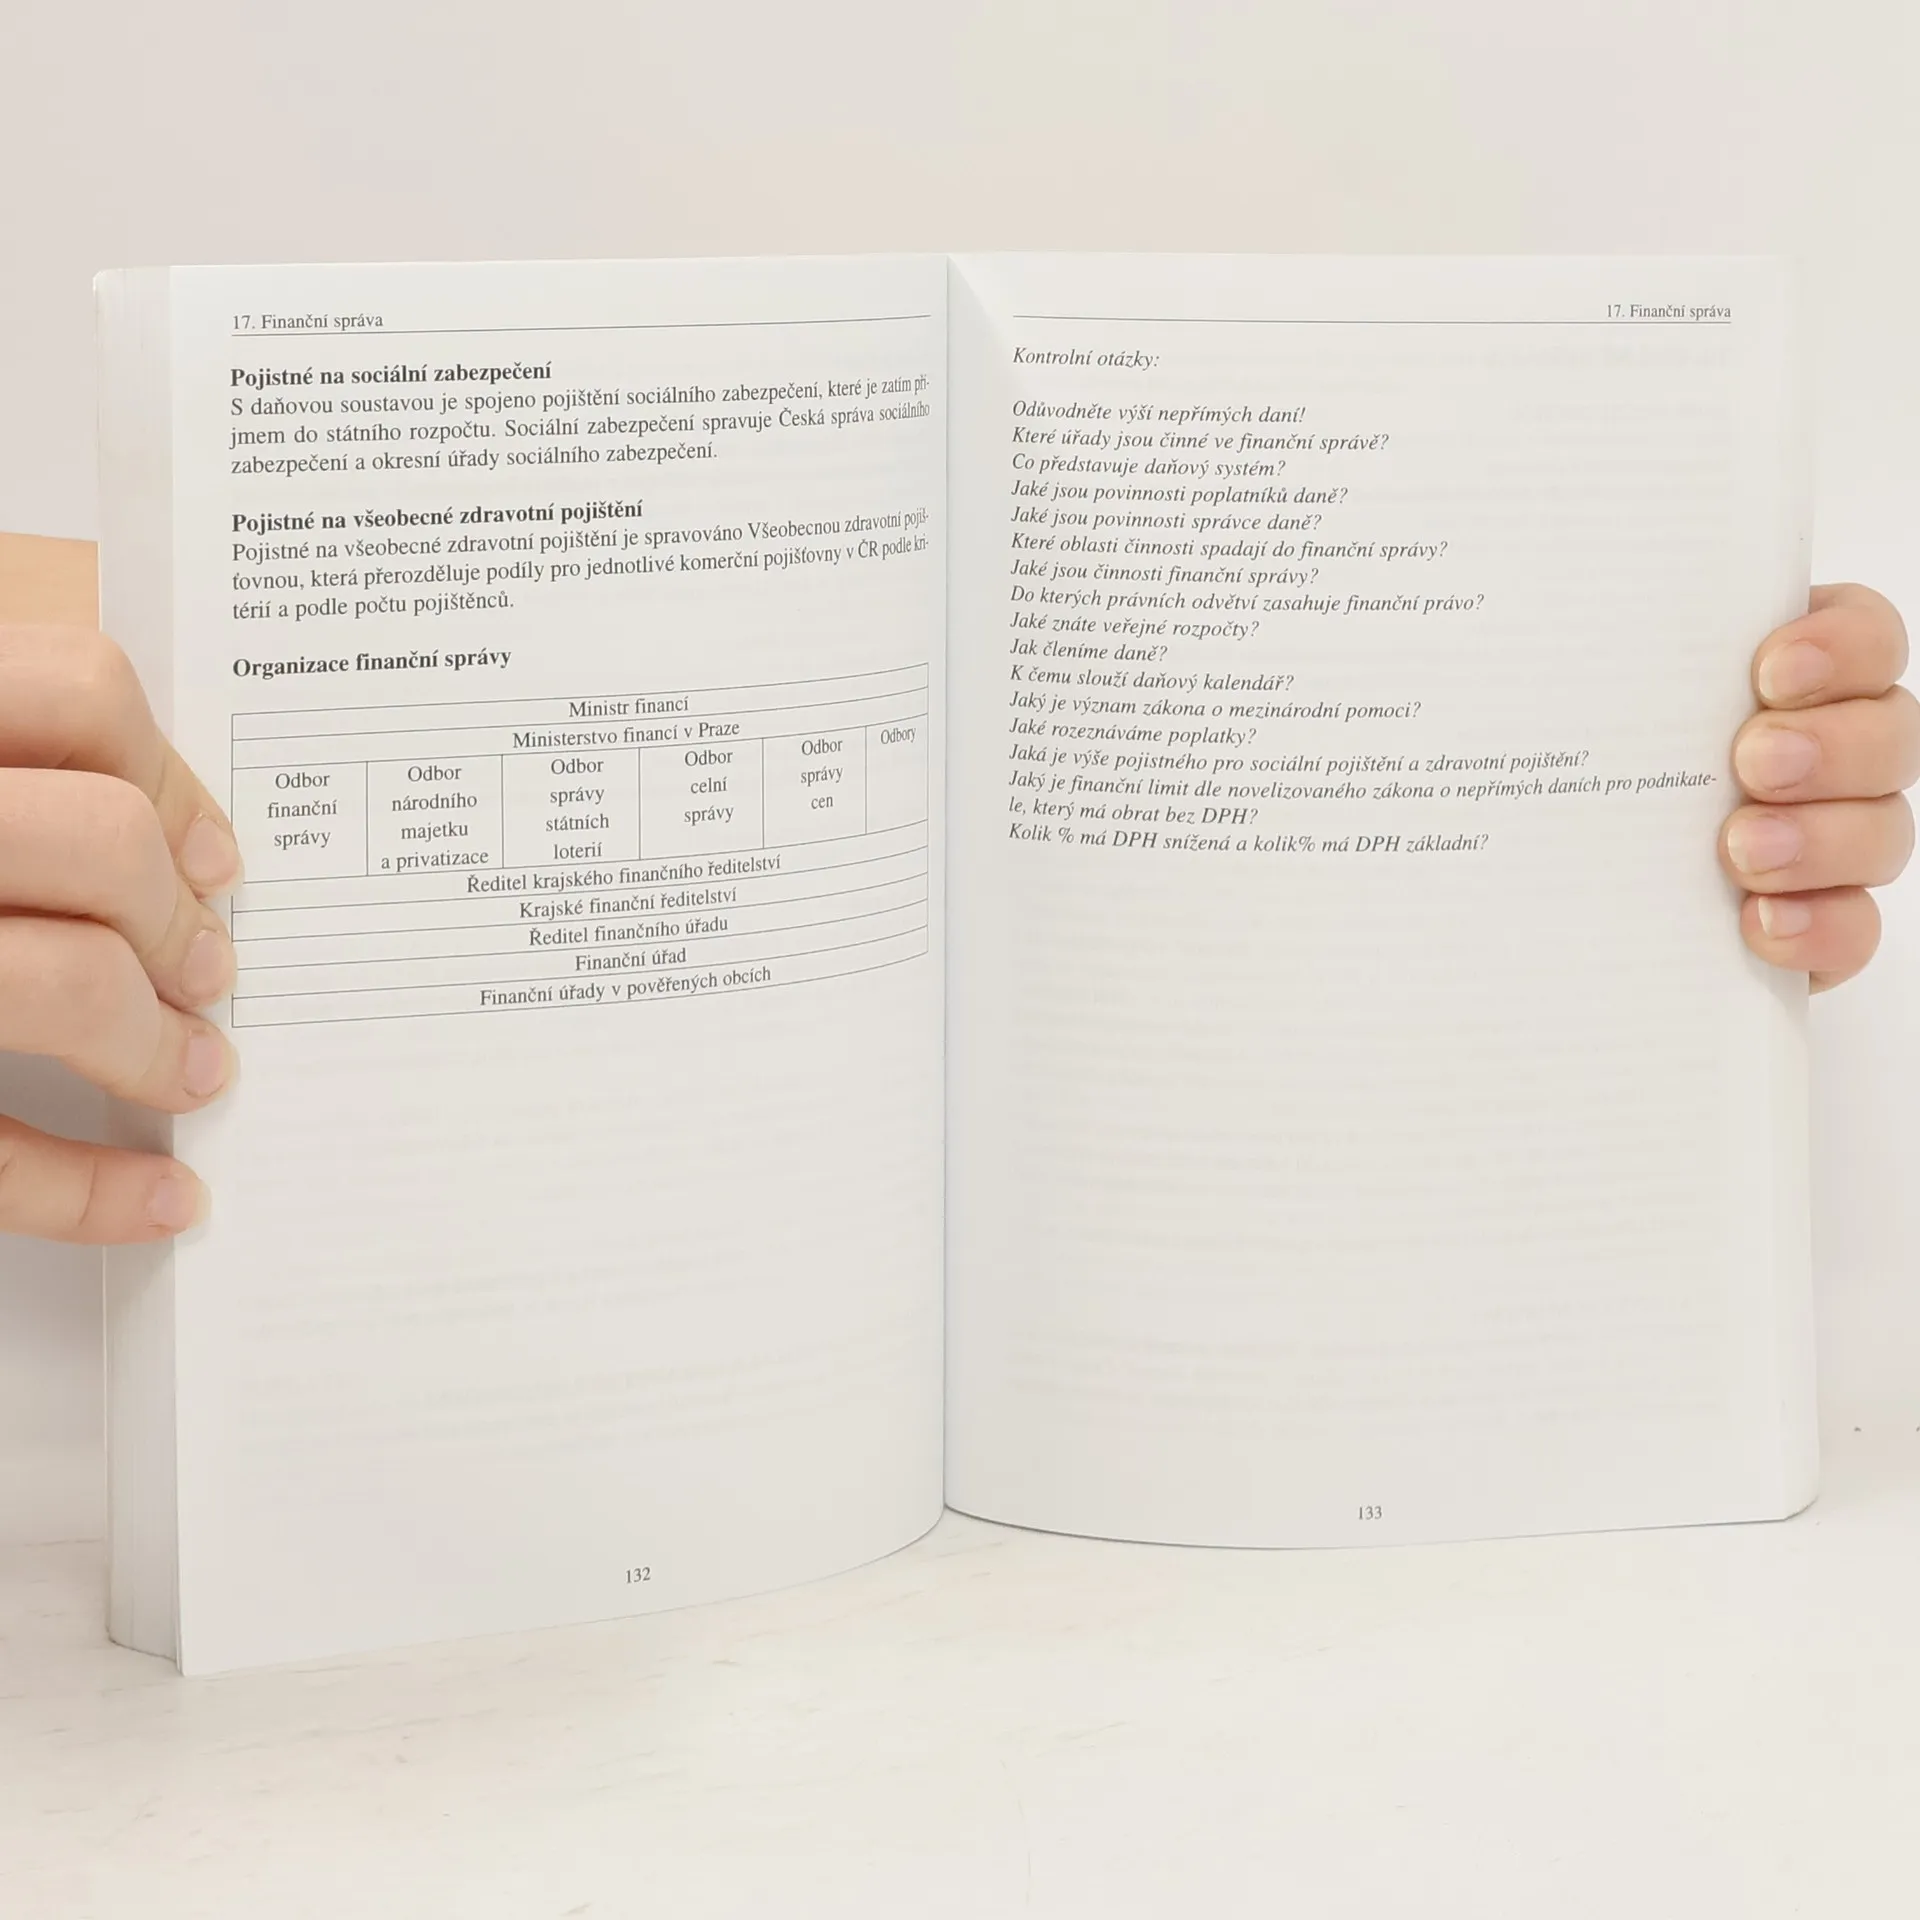 17. Finanční správa
Pojistné na sociální zabezpečení
S daňovou soustavou je spojeno pojištění sociálního zabezpečení, které je zatím pří-
jmem do státního rozpočtu. Sociální zabezpečení spravuje Česká správa sociálního
zabezpečení a okresní úřady sociálního zabezpečení.
Pojistné na všeobecné zdravotní pojištění
Pojistné na všeobecné zdravotní pojištění je spravováno Všeobecnou zdravotní pojiš-
ťovnou, která přerozděluje podíly pro jednotlivé komerční pojišťovny v ČR podle kri-
térií a podle počtu pojištěnců.
Organizace finanční správy
Ministr financí
Ministerstvo financí v Praze
Odbor finanční správy
Odbor národního majetku a privatizace
Odbor správy státních loterií
Odbor celní správy
Odbor správy cen
Odbory
Ředitel krajského finančního ředitelství
Krajské finanční ředitelství
Ředitel finančního úřadu
Finanční úřad
Finanční úřady v pověřených obcích
132
17. Finanční správa
Kontrolní otázky:
Odůvodněte výší nepřímých daní!
Které úřady jsou činné ve finanční správě?
Co představuje daňový systém?
Jaké jsou povinnosti poplatníků daně?
Jaké jsou povinnosti správce daně?
Které oblasti činnosti spadají do finanční správy?
Jaké jsou činnosti finanční správy?
Do kterých právních odvětví zasahuje finanční právo?
Jaké znáte veřejné rozpočty?
Jak členíme daně?
K čemu slouží daňový kalendář?
Jaký je význam zákona o mezinárodní pomoci?
Jaké rozeznáváme poplatky?
Jaká je výše pojistného pro sociální pojištění a zdravotní pojištění?
Jaký je finanční limit dle novelizovaného zákona o nepřímých daních pro podnikate-
le, který má obrat bez DPH?
Kolik % má DPH snížená a kolik% má DPH základní?
133